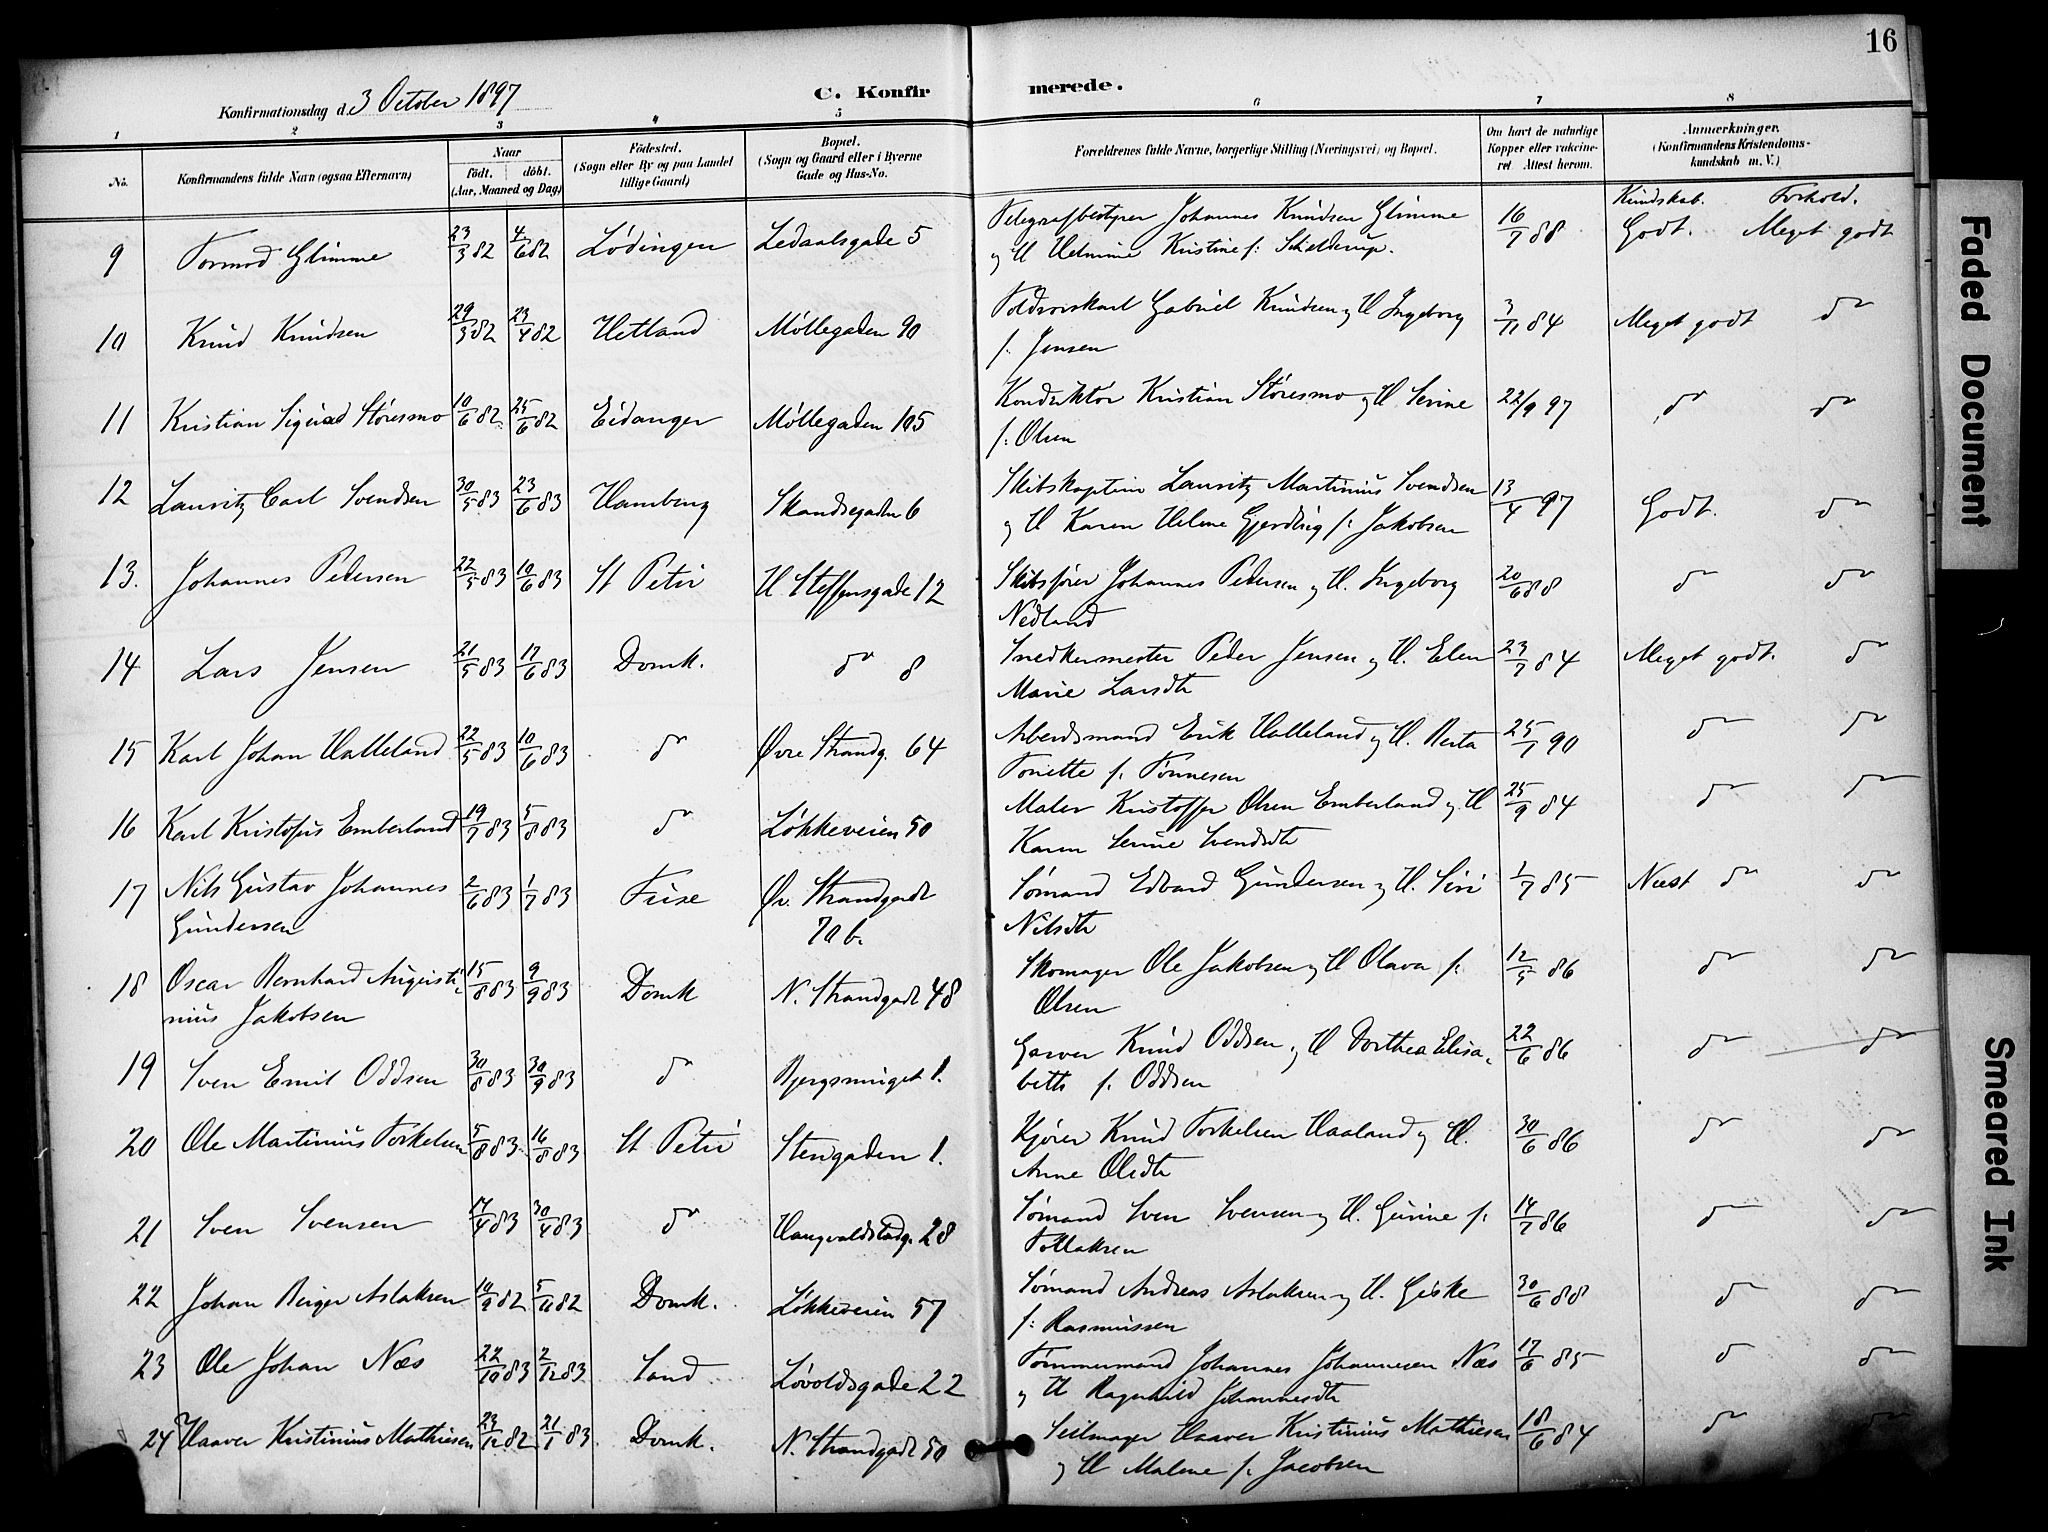 16
Konfirmationsdag d. 3 October 1897
C. Konfirmerede.
1 2 3 4 5 6 7 8
No.
Konfirmandens fulde Navn (ogsaa Efternavn)
Naar
födt. döbt.
(Aar, Maaned og Dag)
Födested.
(Sogn eller By og paa Landet
tillige Gaard)
Bopæl.
(Sogn og Gaard eller i Byerne
Gade og Hus-No.
Forældrenes fulde Navne, borgerlige Stilling (Næringsvei) og Bopæl.
Om havt de naturlige
Kopper eller vakcine-
ret. Attest herom.
Anmærkninger.
(Konfirmandens Kristendoms-
kundskab m. V.)
Kundskab. Forhold.
9 Tormod Glimme 23/3 82 4/6 82 Lødingen Ledaalsgade 5 Telegrafbestyrer Johannes Knudsen Glimme 16/7 88 Godt. Meget godt
og H Helmine Kristine f: Schielderup.
10 Knud Knudsen 29/3 82 23/4 82 Hetland Møllegaden 90 Toldroiskarl Gabriel Knudsen og H Ingeborg 3/11 84 Meget godt do
f. Jensen
11 Kristian Sigurd Støresmo 10/6 82 25/6 82 Eidanger Møllegaden 105 Konduktør Kristian Støresmo og H Serine 22/9 97 do do
f: Olsen
12 Lauritz Carl Svendsen 30/5 83 23/6 83 Hamburg Skandsegaden 6 Skibskaptein Lauritz Martinius Svendsen 13/4 97 Godt. do
og H Karen Helene Gjerding f: Jakobsen
13. Johannes Pedersen 22/5 83 10/6 83 St Petri H Steffensgade 12 Skibsfører Johannes Pedersen og H. Ingeborg 20/6 88 do do
Nedland
14 Lars Jensen 21/5 83 17/6 83 Domk. do 8 Snedkermester Peder Jensen og H. Elen 23/7 84 Meget godt. do
Marie Larsdtr
15 Karl Johan Halleland 22/5 83 10/6 83 do Øvre Strandg. 64 Arbeidsmand Erik Halleland og H. Berta 25/1 90 do do
Toriette f. Tønnesen
16 Karl Kristofus Emberland 19/7 83 5/8 83 do Løkkeveien 50 Maler Kristoffer Olsen Emberland og H 25/9 84 do do
Karen Serine Svendsdtr
17 Nils Gustav Johannes 2/6 83 1/7 83 Fuse Øv. Strandgade Sømand Edvard Gundersen og H. Siri 1/7 85 Næst do do
Gundersen 70 b. Nilsdtr
18 Oscar Bernhard Augusti- 15/8 83 9/9 83 Domk N. Strandgade 48 Skomager Ole Jakobsen og H Olava f: 12/5 86 do do
nius Jakobsen Olsen
19 Sven Emil Oddsen 30/8 83 30/9 83 do Bjergsmuget 1. Garver Knud Oddsen og H Dorthea Elisa- 22/6 86 do do
beth f. Oddsen
20 Ole Martinius Torkelsen 5/8 83 16/8 83 St Petri Stengaden 1. Kjører Knud Torkelsen Haaland og H. 30/6 86 do do
Anne Olsdtr
21 Sven Svensen 17/4 83 30/4 83 do Haugvaldstadg. 28 Sømand Sven Svensen og H. Gurine f: 14/7 86 do do
Tollaksen
22 Johan Birger Aslaksen 10/9 82 5/11 82 Domk. Løkkeveien 57 Sømand Andreas Aslaksen og H. Giske 30/6 88 do do
f: Rasmussen
23 Ole Johan Næs 22/10 83 2/12 83 Sand Løvoldsgade 22 Tømmermand Johannes Johannesen Næs 17/6 85 do do
og H Ragnhild Johannesdtr
24 Haaver Kristinius Mathiesen 23/12 82 21/1 83 Domk. N. Strandgade 50 Seilmager Haaver Kristinius Mathiesen 18/6 84 do do
og H Malene f. Jacobsen
Faded Document
Smeared Ink